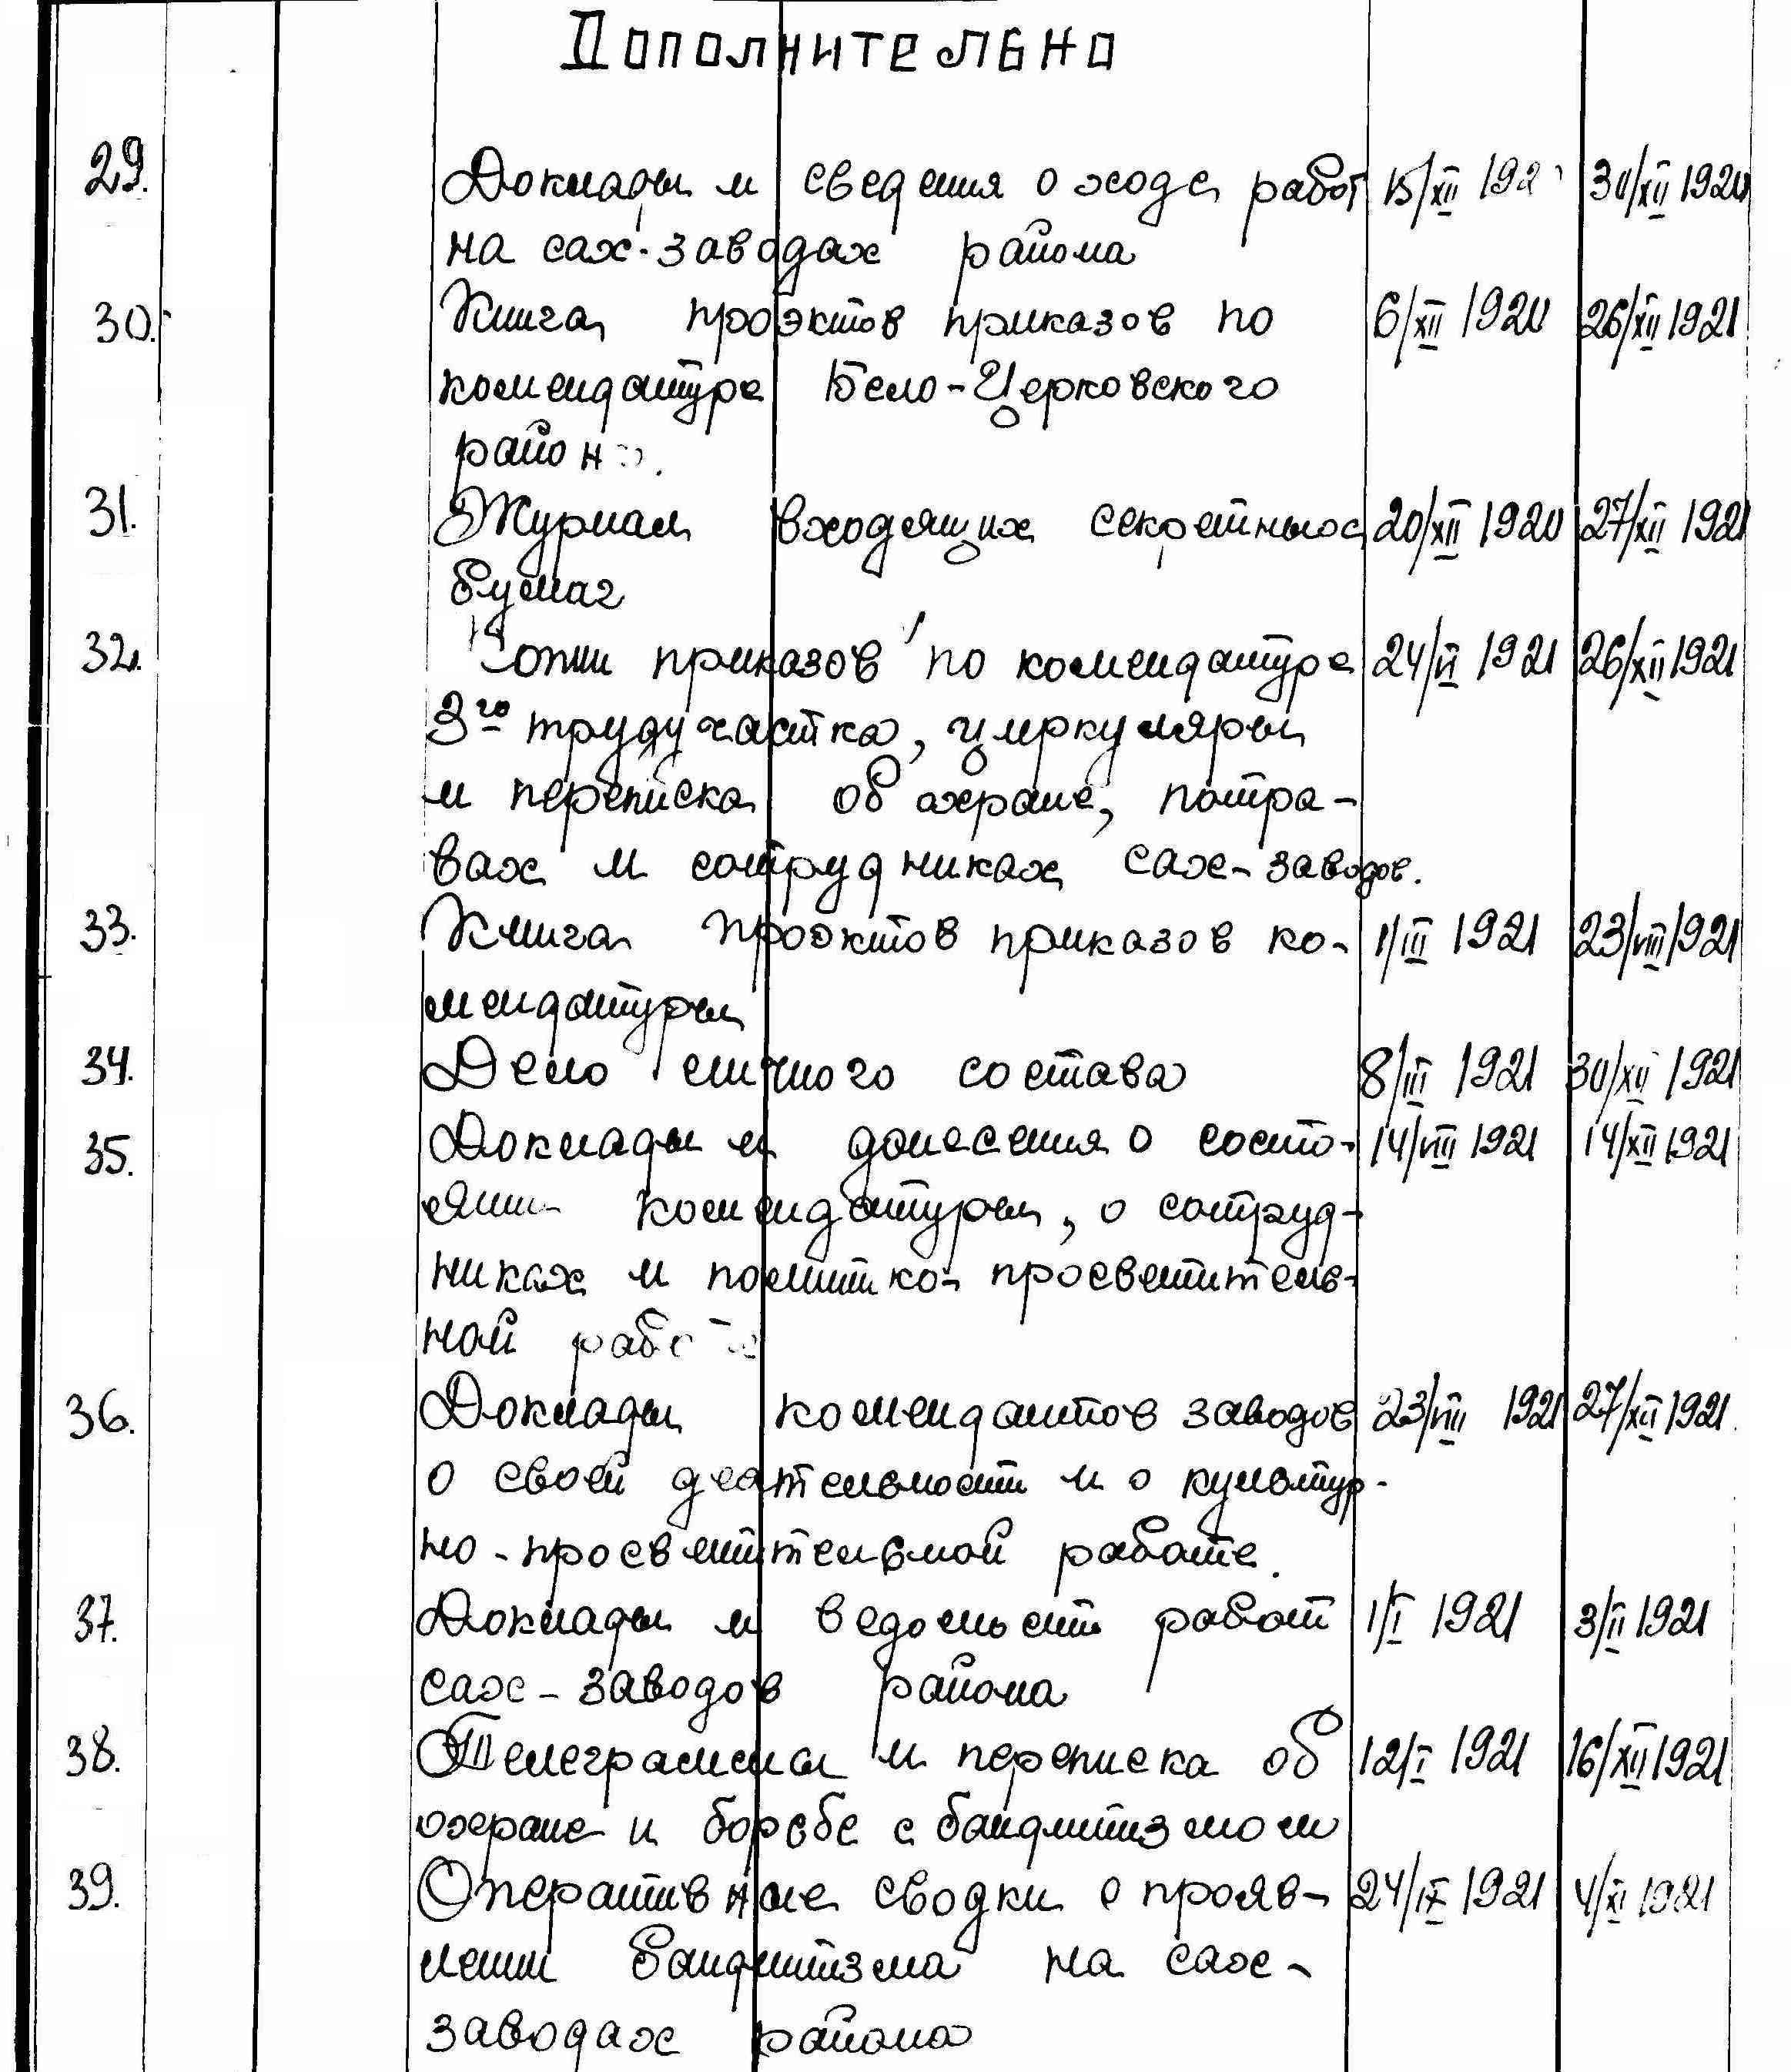 Дополнительно
29. Доклады и сведения о ходе работ 15/XII 30/XII 1920
на сах-заводах района
30. Книга проэктов приказов по 6/XII 1920 26/XII 1921
комендатуре Бело-Церковского
района.
31. Журнал входящих секретных 20/XII 1920 27/XII 1921
бумаг
32. Копии приказов по комендатуре 24/VI 1921 26/XII 1921
3го трудучастка, циркуляры
и переписка об охране, потра-
вах и сотрудниках сах-заводов.
33. Книга проэктов приказов ко- 1/III 1921 23/VIII 1921
мендатуры
34. Дело личного состава 8/III 1921 30/XII 1921
35. Доклады и донесения о состо- 14/VIII 1921 14/XII 1921
янии комендатуры, о сотруд-
никах и политко-просветитель-
ной работе
36. Доклады комендантов заводов 23/VIII 1921 27/XII 1921
о своей деятельности и о культур-
но-просветительной работе.
37. Доклады и ведомости работ 1/I 1921 3/II 1921
сах-заводов района
38. Телеграммы и переписка об 12/I 1921 16/XII 1921
охране и борьбе с бандитизмом
39. Оперативные сводки о прояв- 24/IX 1921 4/XI 1921
лении бандитизма на сах-
заводах района